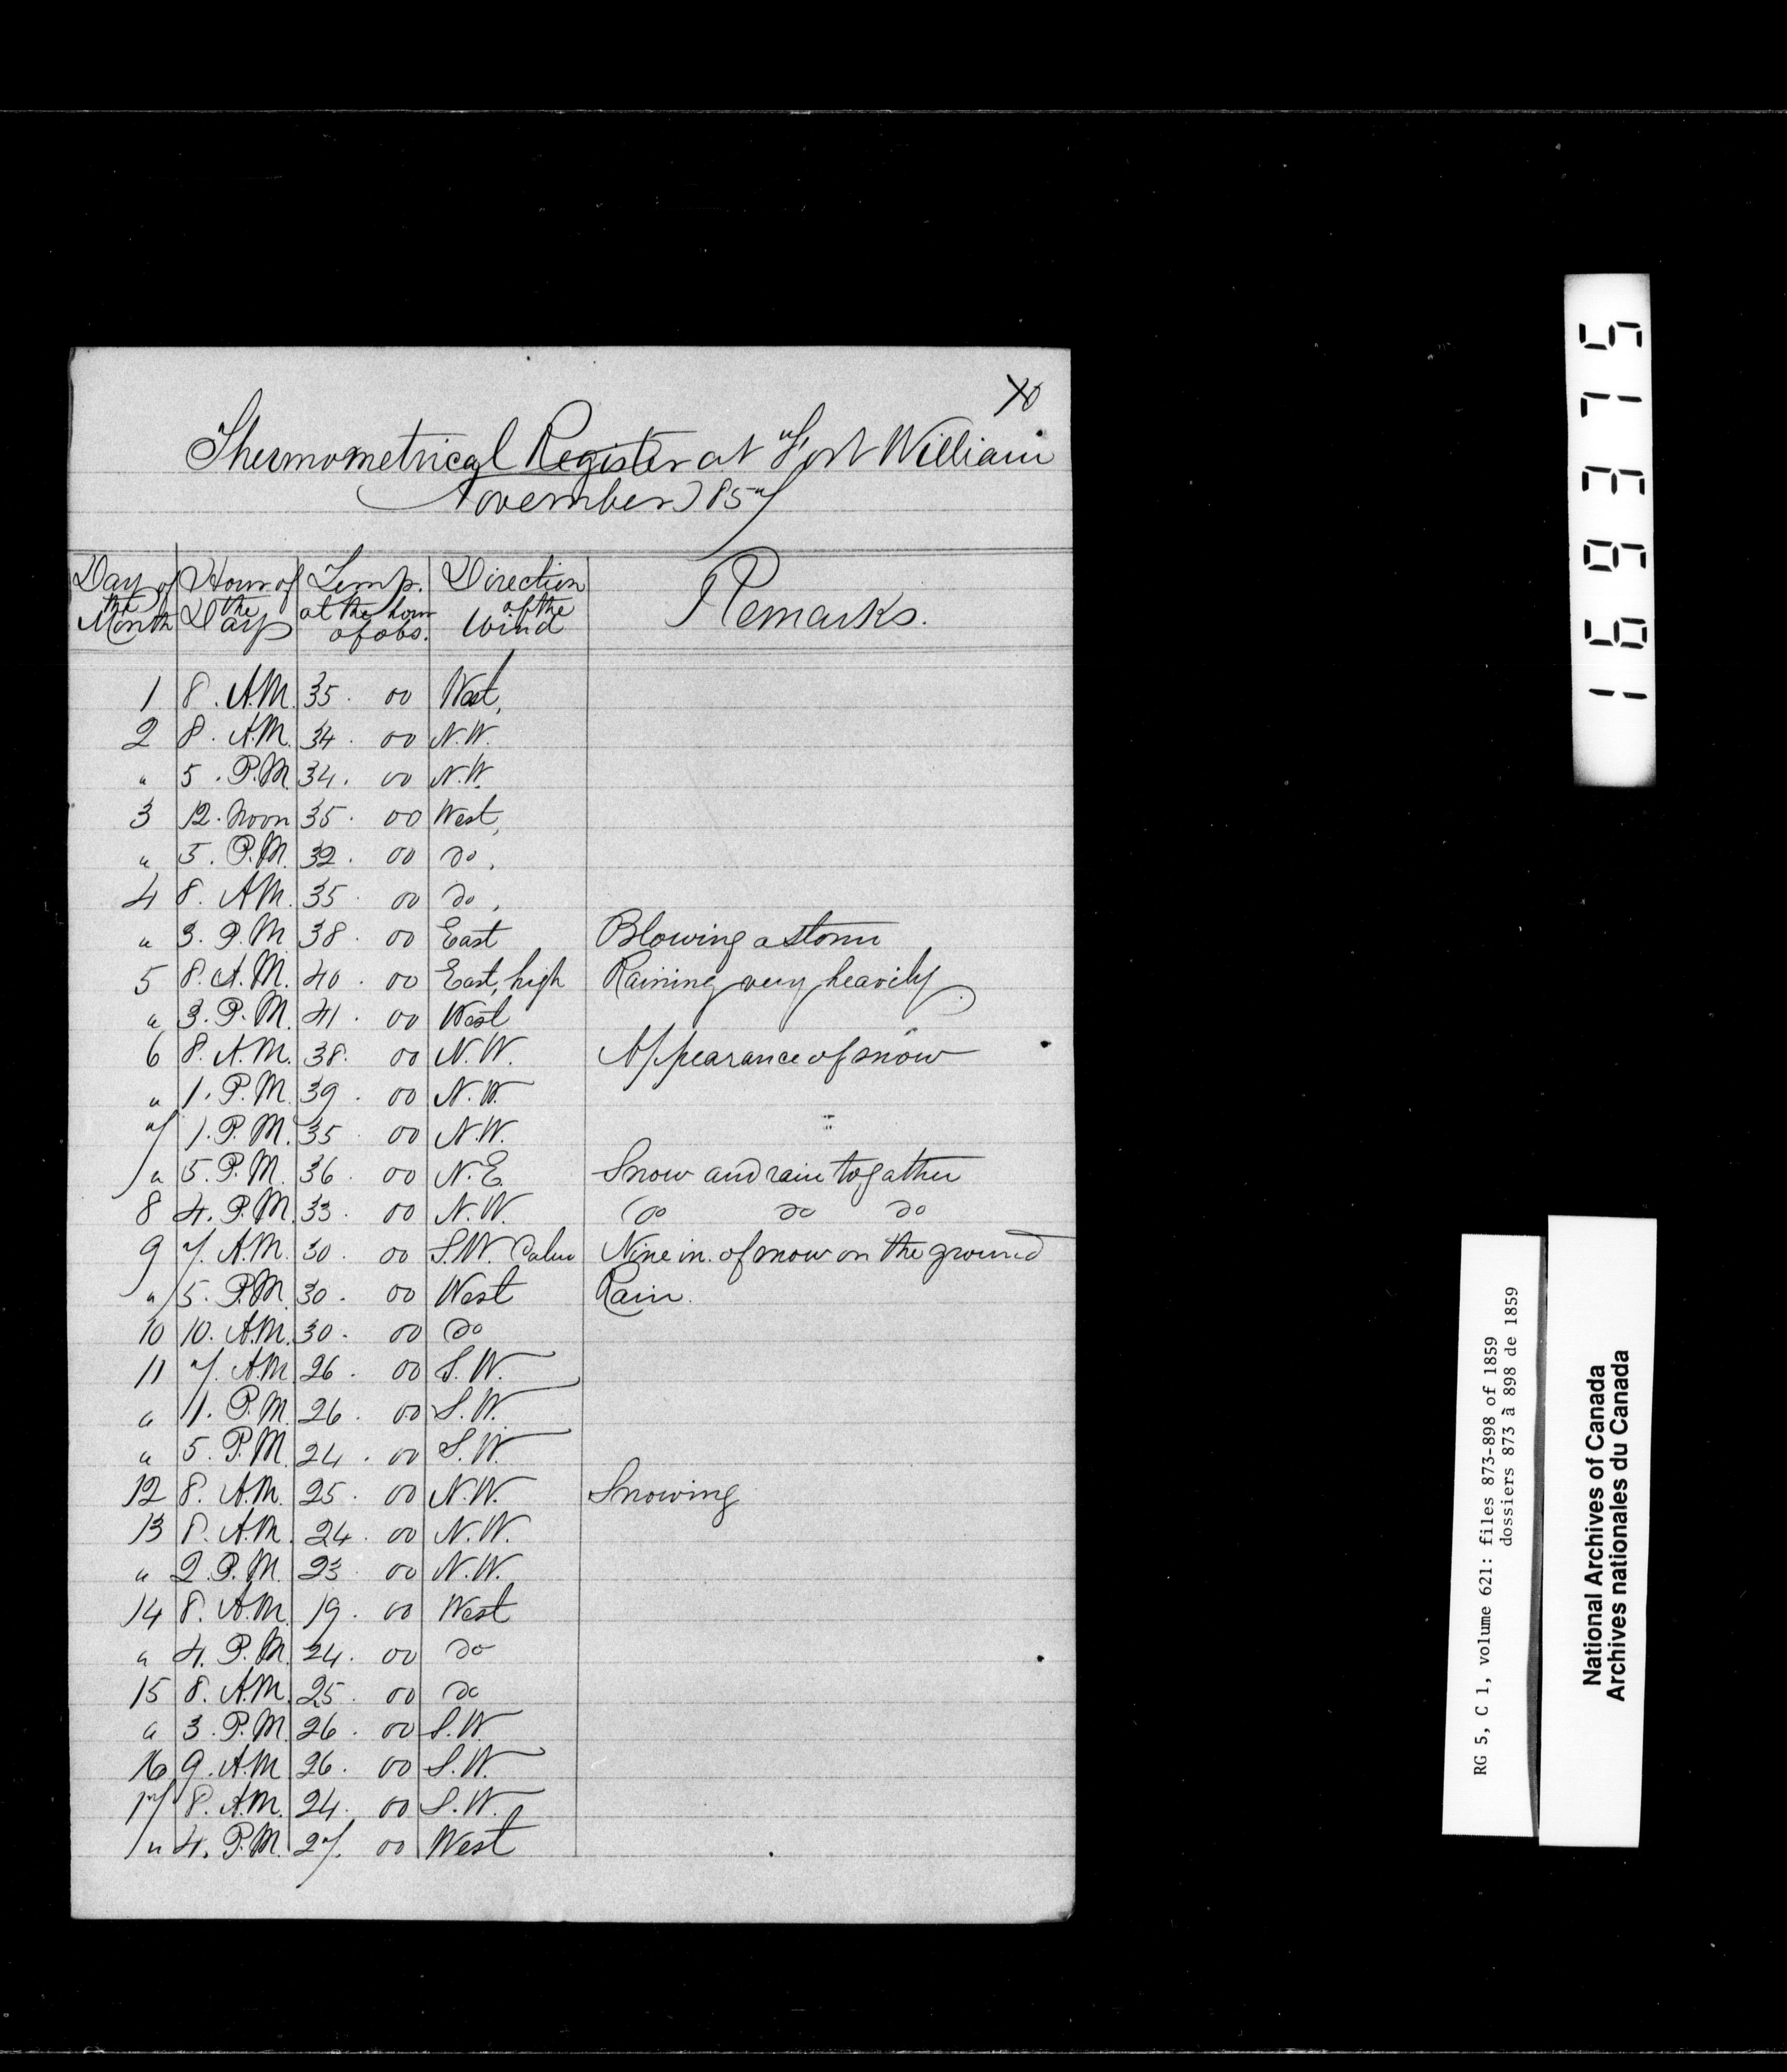 Thermometrical Register at Fort William
November 1857
Day of the Month Hour of the Day Temp. at the hour of obs. Direction of the Wind Remarks.
1 8. A.M. 35. 00 West,
2 8. A.M. 34. 00 N.W.
" 5. P.M. 34. 00 N.W.
3 12. Noon 35. 00 West,
" 5. P.M. 32. 00 do.
4 8. A.M. 35. 00 do.
" 3. P.M. 38. 00 East Blowing a storm
5 8. A.M. 40. 00 East, high Raining very heavily.
" 3. P.M. 41. 00 West
6 8. A.M. 38. 00 N.W. Appearance of snow
" 1. P.M. 39. 00 N.W.
7 1. P.M. 35. 00 N.W.
" 5. P.M. 36. 00 N.E. Snow and rain togather
8 4. P.M. 33. 00 N.W. do do do
9 7. A.M. 30. 00 S.W. Calm Nine in. of snow on the ground
" 5. P.M. 30. 00 West Rain.
10 10. A.M. 30. 00 do
11 7. A.M. 26. 00 S.W.
" 11. P.M. 26. 00 S.W.
" 5. P.M. 24. 00 S.W.
12 8. A.M. 25. 00 N.W. Snowing
13 8. A.M. 24. 00 N.W.
" 2. P.M. 23. 00 N.W.
14 8. A.M. 19. 00 West
" 4. P.M. 24. 00 do
15 8. A.M. 25. 00 do
" 3. P.M. 26. 00 S.W.
16 9. A.M. 26. 00 S.W.
17 8. A.M. 24. 00 S.W.
" 4. P.M. 27. 00 West
169375
RG 5, C 1, volume 621: files 873-898 of 1859
dossiers 873 à 898 de 1859
National Archives of Canada
Archives nationales du Canada